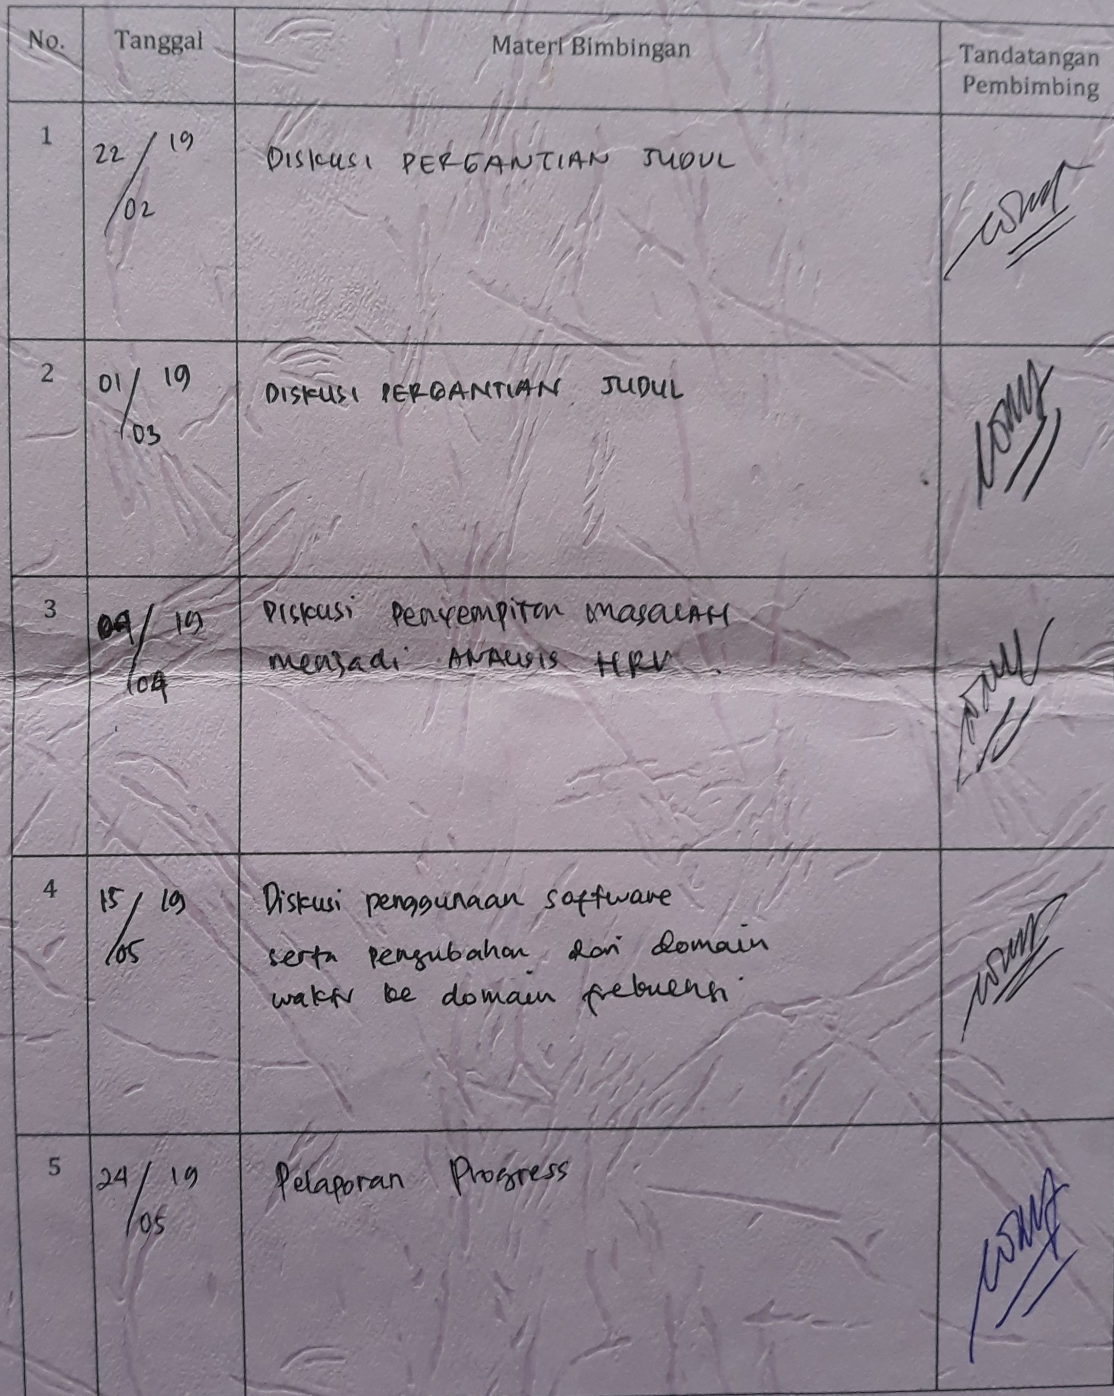 No.
Tanggal
Materi Bimbingan
Tandatangan
Pembimbing
1
22/19
/02
DISKUSI PERGANTIAN JUDUL
2
01/19
/03
DISKUSI PERGANTIAN JUDUL
3
/19
/04
Diskusi Penyempitan masaLAH
menjadi ANALISIS HRV.
4
15/19
/05
Diskusi penggunaan software
serta pengubahan dari domain
waktu ke domain frekuensi
5
24/19
/05
Pelaporan Progress